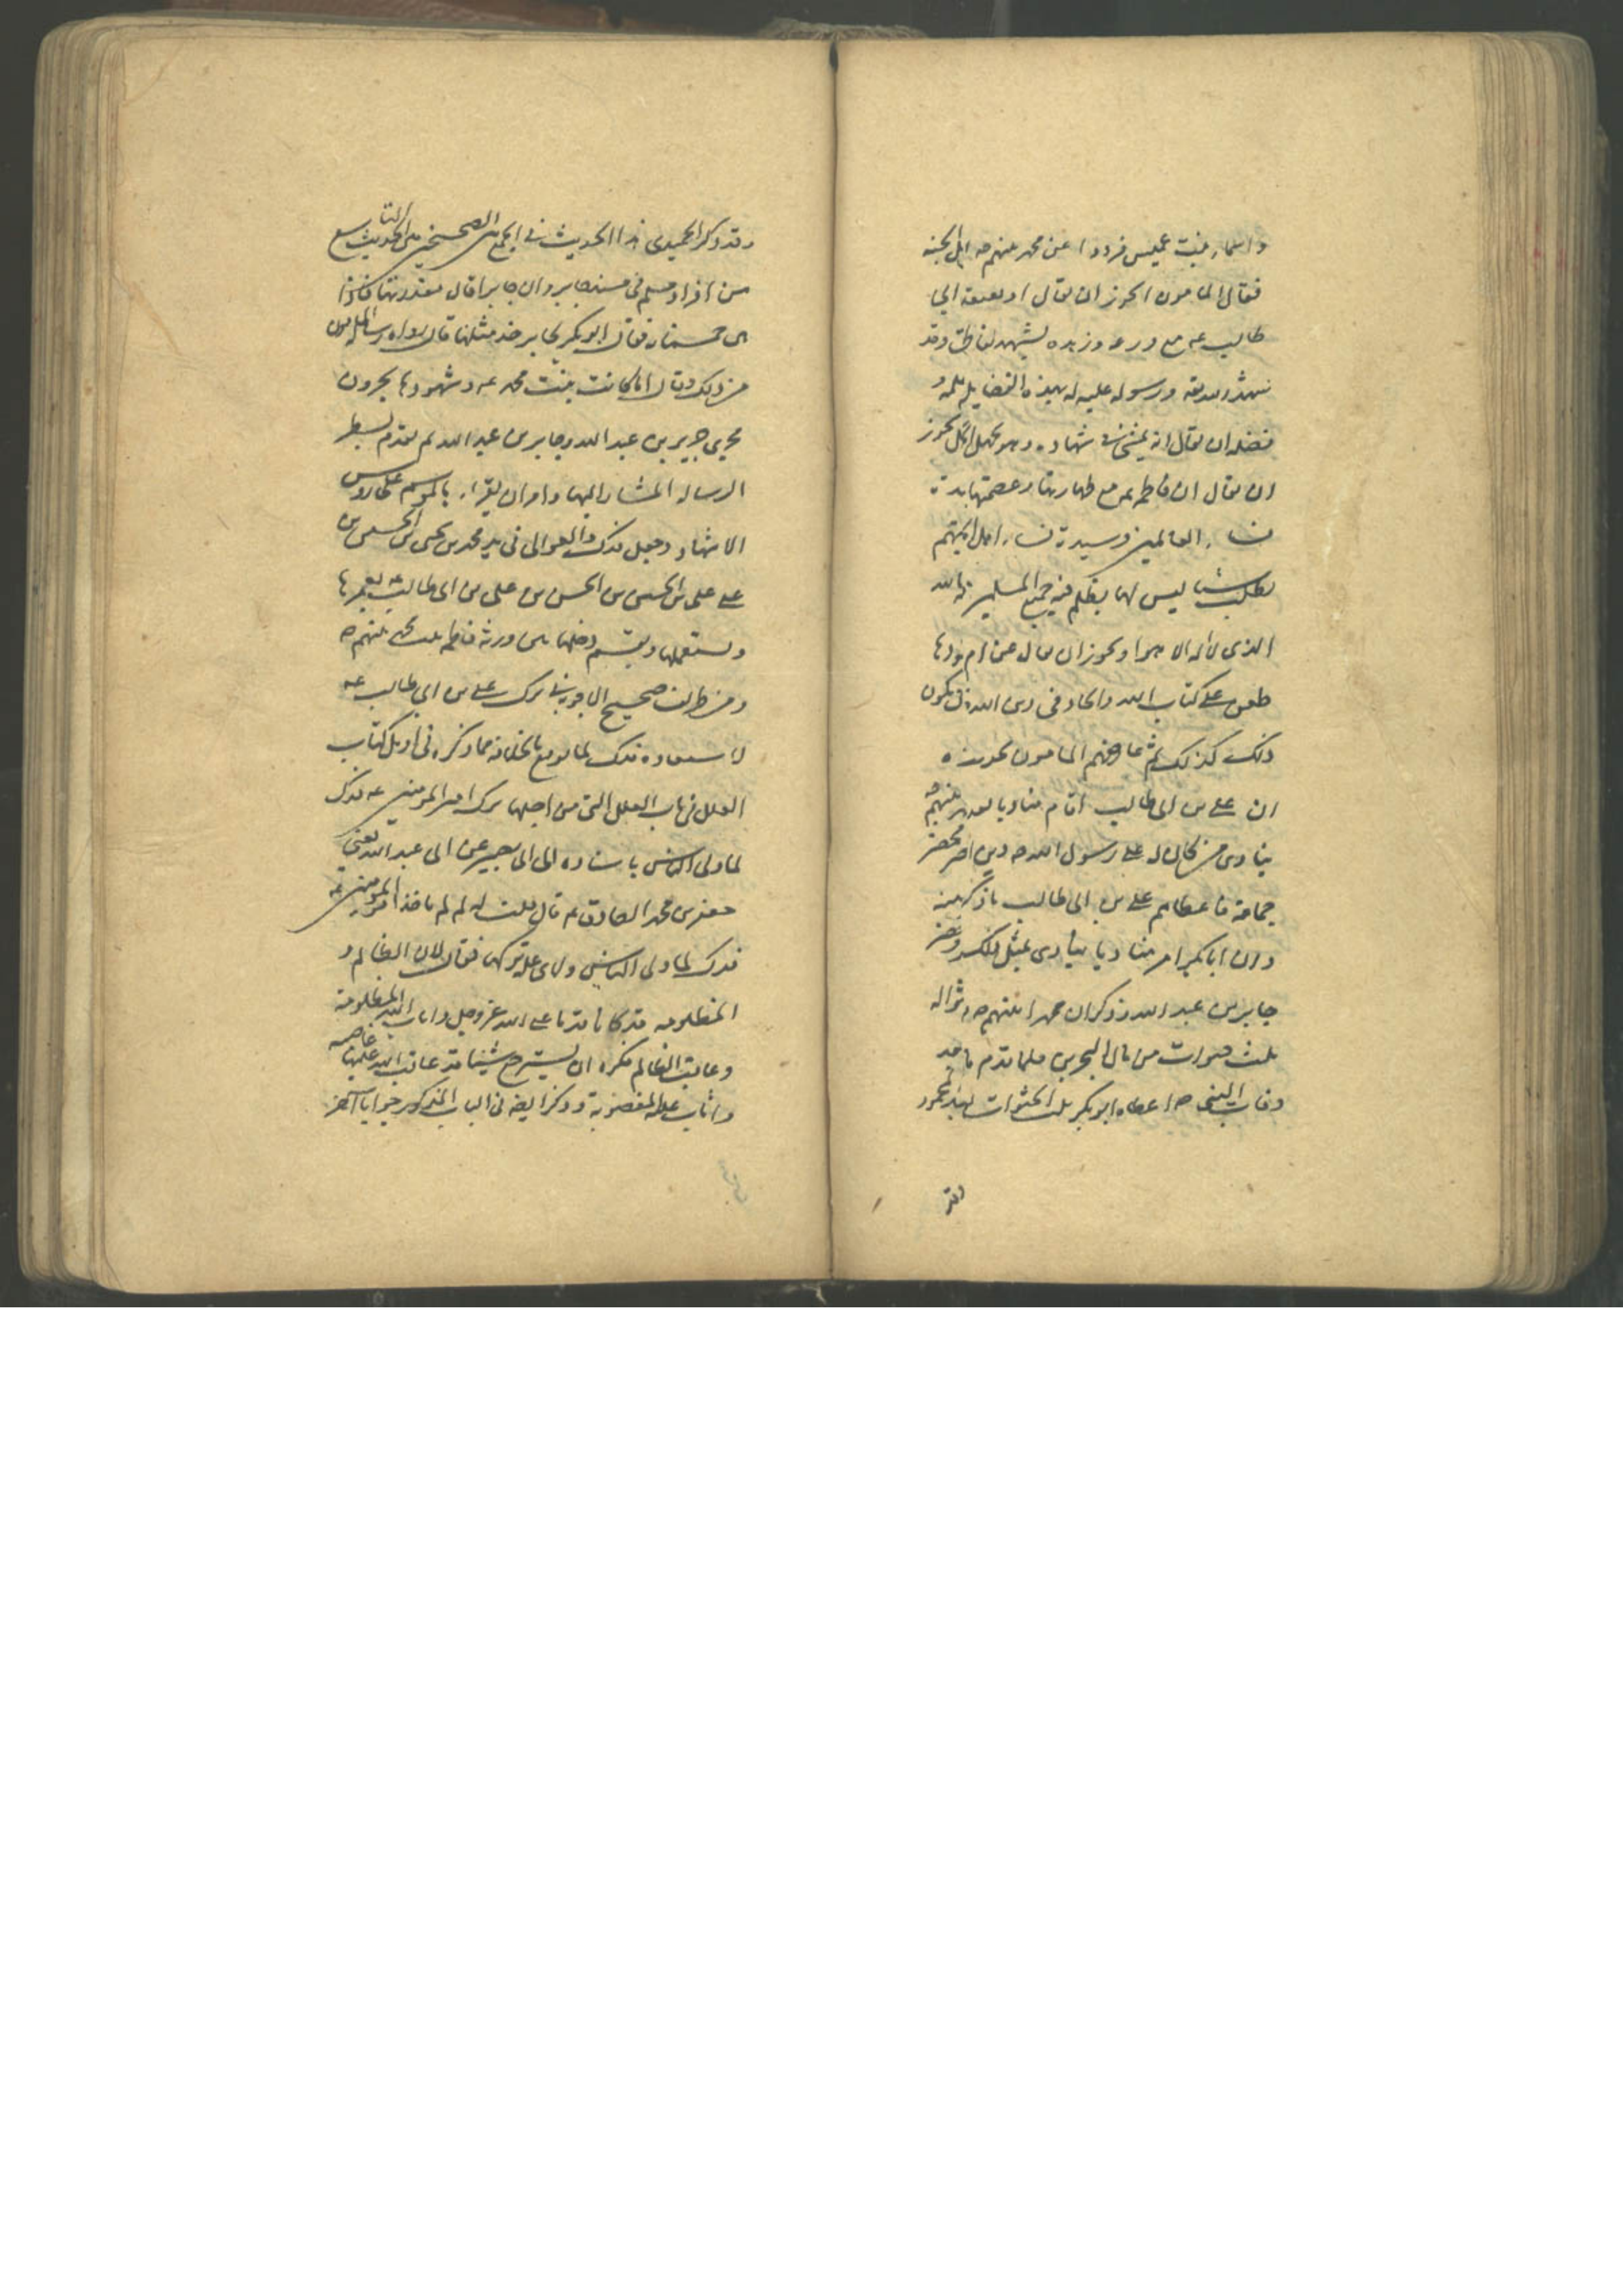 واسماء بنت عميس فردوا عن محمد نبيهم ص اهل الجنه
فقال المامون ايجوز ان يقال او يعتقد ان على بن ابى
طالب عه مع ورعه وزهده يشهد لفاطمة وقد
شهد الله تعه ورسوله عليه له بهذه الفضايل علمه و
فضله ان يقال انه يمشى فى شهاده وهو يجهل الحكم يجوز
ان يقال ان فاطمه عه مع طهارتها وعصمتها
نساء العالمين وسيدة نساء اهل الجنة
تطلب شيئا ليس لها يظلم فيه جميع المسلمين بالله
الذى لا اله الا هو او يجوز ان يقال عن ام
طعن على كتاب الله والحاد فى دين الله ان يكون
ذلك كذلك ثم عارضهم المامون بحديث
ان على بن ابى طالب اقام مناديا بعد نبيهم ص
ينادى من كان له على رسول الله ص دين فحضر
جماعة فاعطاهم على بن ابى طالب
وان ابا بكر امر مناديا ينادى بمثل ذلك فحضر
جابر بن عبد الله وذكر ان محمدا نبيهم ص
ثلث حثوات من مال البحرين فلما قدم
وفات النبى ص اعطاه ابو بكر ثلث الحثوات
وقد
وقد ذكر الحميدى هذا الحديث فى الجمع بين الصحيحين فى الحديث التاسع
من افراد مسلم فى مسند جابر وان جابرا قال فعددتها فاذا
هى خمسمائة فقال ابو بكر لجابر خذ مثليها قال رواه رسالة المامون
من ذلك وقال اما كانت بنت محمد عه وشهودها يجرون
مجرى جرير بن عبد الله وجابر بن عبد الله ثم تقدم بسطر
الرساله المشار اليها وامر ان يقراء بالموسم على روس
الاشهاد وجعل فدك والعوالى فى يد محمد بن يحيى بن الحسين بن
على بن الحسين بن على بن ابى طالب عه يعمرها
ويستغلها ويقسم دخلها بين ورثة فاطمه بنت محمد نبيهم ص
ومن طرايف صحيح الاجوبه فى ترك على بن ابى طالب عه
لاستعاده فدك لما بويع بالخلافه مما ذكره فى اوايل كتاب
العلل فى باب العلل التى من اجلها ترك امير المومنين عه فدك
لما ولى الناس باسناده الى ابى بصير عن ابى عبد الله يعنى
جعفر بن محمد الصادق عه قال قلت له لم لم ياخذ امير المومنين عه
فدك لما ولى الناس ولاى علة تركها فقال لان الظالم و
المظلومه قد كانا قدما على الله عز وجل واثاب الله المظلومة
وعاقب الظالم فكره ان يسترجع شيئا قد عاقب الله عليه غاصبه
واثاب عليه المغصوبة وذكر ايضا فى الباب المذكور جوابا آخر